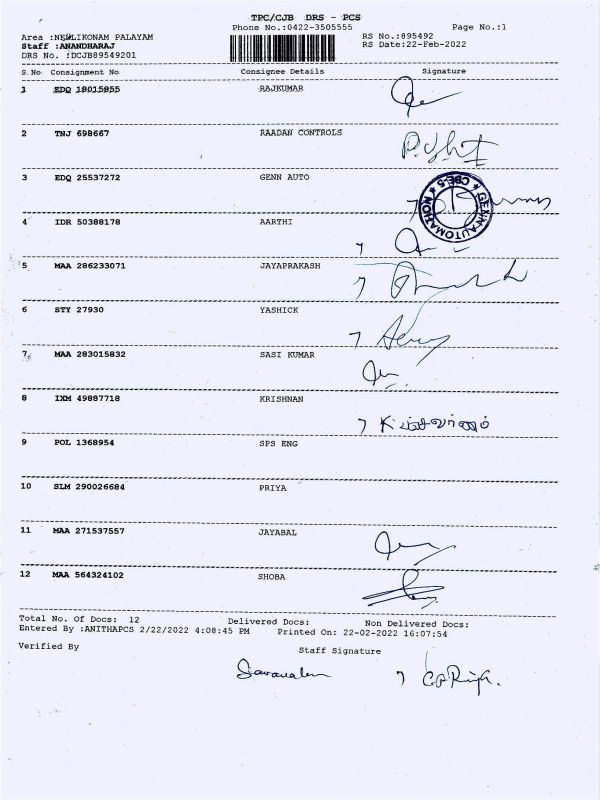 TPC/CJB DRS - PCS
Phone No.:0422-3505555 Page No.:1
Area :NEELIKONAM PALAYAM RS No.:895492
Staff :ANANDHARAJ RS Date:22-Feb-2022
DRS No. :DCJB89549201
S.No Consignment No Consignee Details Signature
1 EDQ 18015855 RAJKUMAR
2 TNJ 698667 RAADAN CONTROLS
3 EDQ 25537272 GENN AUTO
GENN AUTOMATION CBE-5
4 IDR 50388178 AARTHI
5 MAA 286233071 JAYAPRAKASH
6 STY 27930 YASHICK
7 MAA 283015832 SASI KUMAR
8 IXM 49887718 KRISHNAN
9 POL 1368954 SPS ENG
10 SLM 290026684 PRIYA
11 MAA 271537557 JAYABAL
12 MAA 564324102 SHOBA
Total No. Of Docs: 12 Delivered Docs: Non Delivered Docs:
Entered By :ANITHAPCS 2/22/2022 4:08:45 PM Printed On: 22-02-2022 16:07:54
Verified By Staff Signature